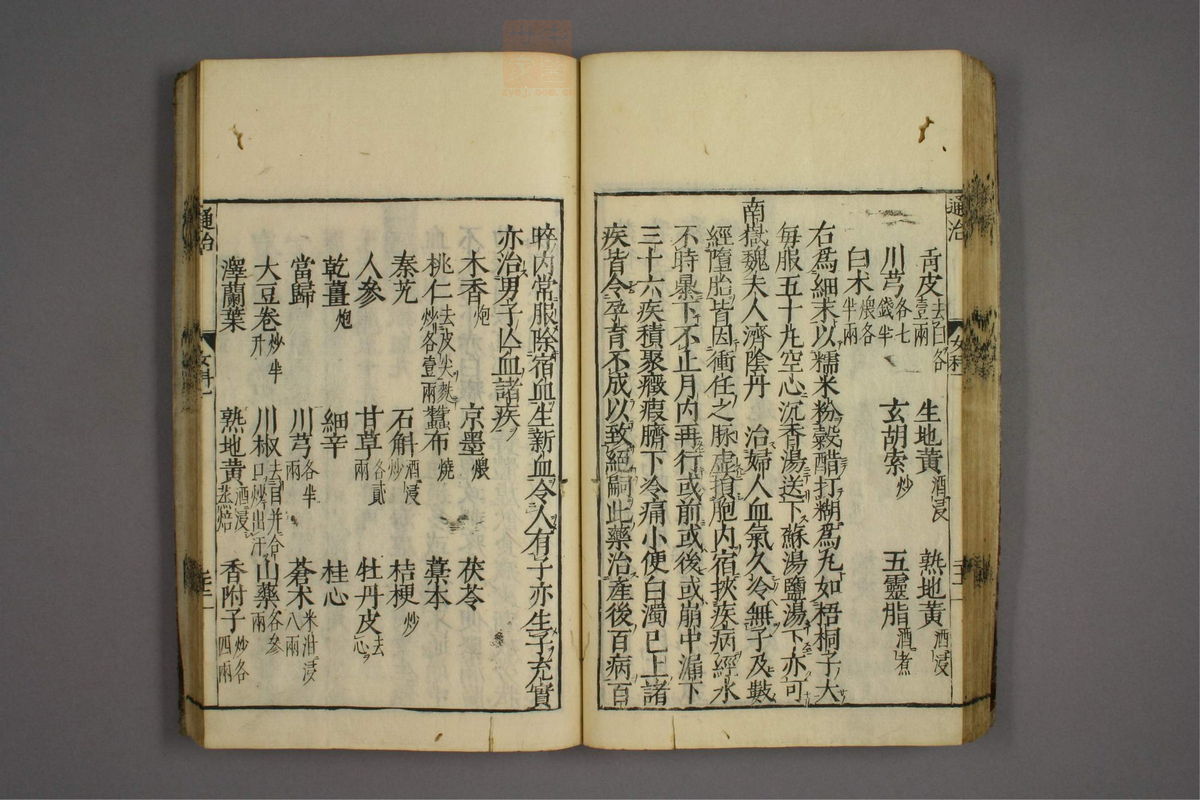 通治
青皮去白各壹兩 生地黃酒浸 熟地黃酒浸
川芎各七錢半 玄胡索炒 五靈脂酒煮
白木煨各半兩
右爲細末以糯米粉穀醋打糊爲丸如梧桐子大
每服五十丸空心沉香湯送下蘇湯鹽湯下亦可
南嶽魏夫人濟陰丹 治婦人血氣久冷無子及數
經墮胎皆因衝任之脉虛損胞內宿挾疾病經水
不時暴下不止月內再行或前或後或崩中漏下
三十六疾積聚癥瘕臍下冷痛小便白濁已上諸
疾皆令孕育不成以致絕嗣此藥治產後百病百
晬內常服除宿血生新血令人有子亦生子充實
亦治男子亾血諸疾
木香炮 京墨煨 茯苓
桃仁去皮尖麩炒各壹兩 蠶布燒 藁本
秦艽 石斛酒浸炒 桔梗炒
人參 甘草各貳兩 牡丹皮去心
乾薑炮 細辛 桂心
當歸 川芎各半兩 蒼木米泔浸八兩
大豆卷炒半升 川椒去目并合口㷅出汗 山藥各參兩
澤蘭葉 熟地黃酒浸蒸焙 香附子炒各四兩
通治 女科一